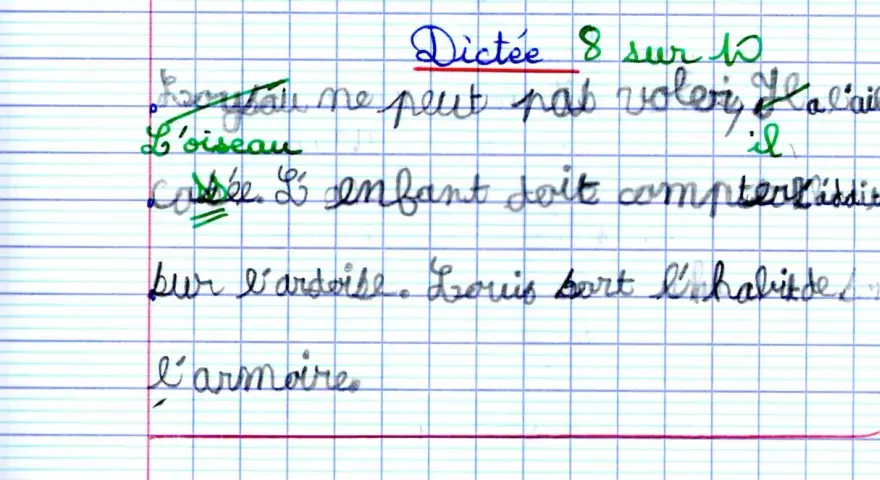 Dictée 8 sur 10
ne peut pas voler, Il a l'ail
L'oiseau il
cassée. L'enfant doit compter l'addit
sur l'ardoise. Louis sort l'habit de
l'armoire.